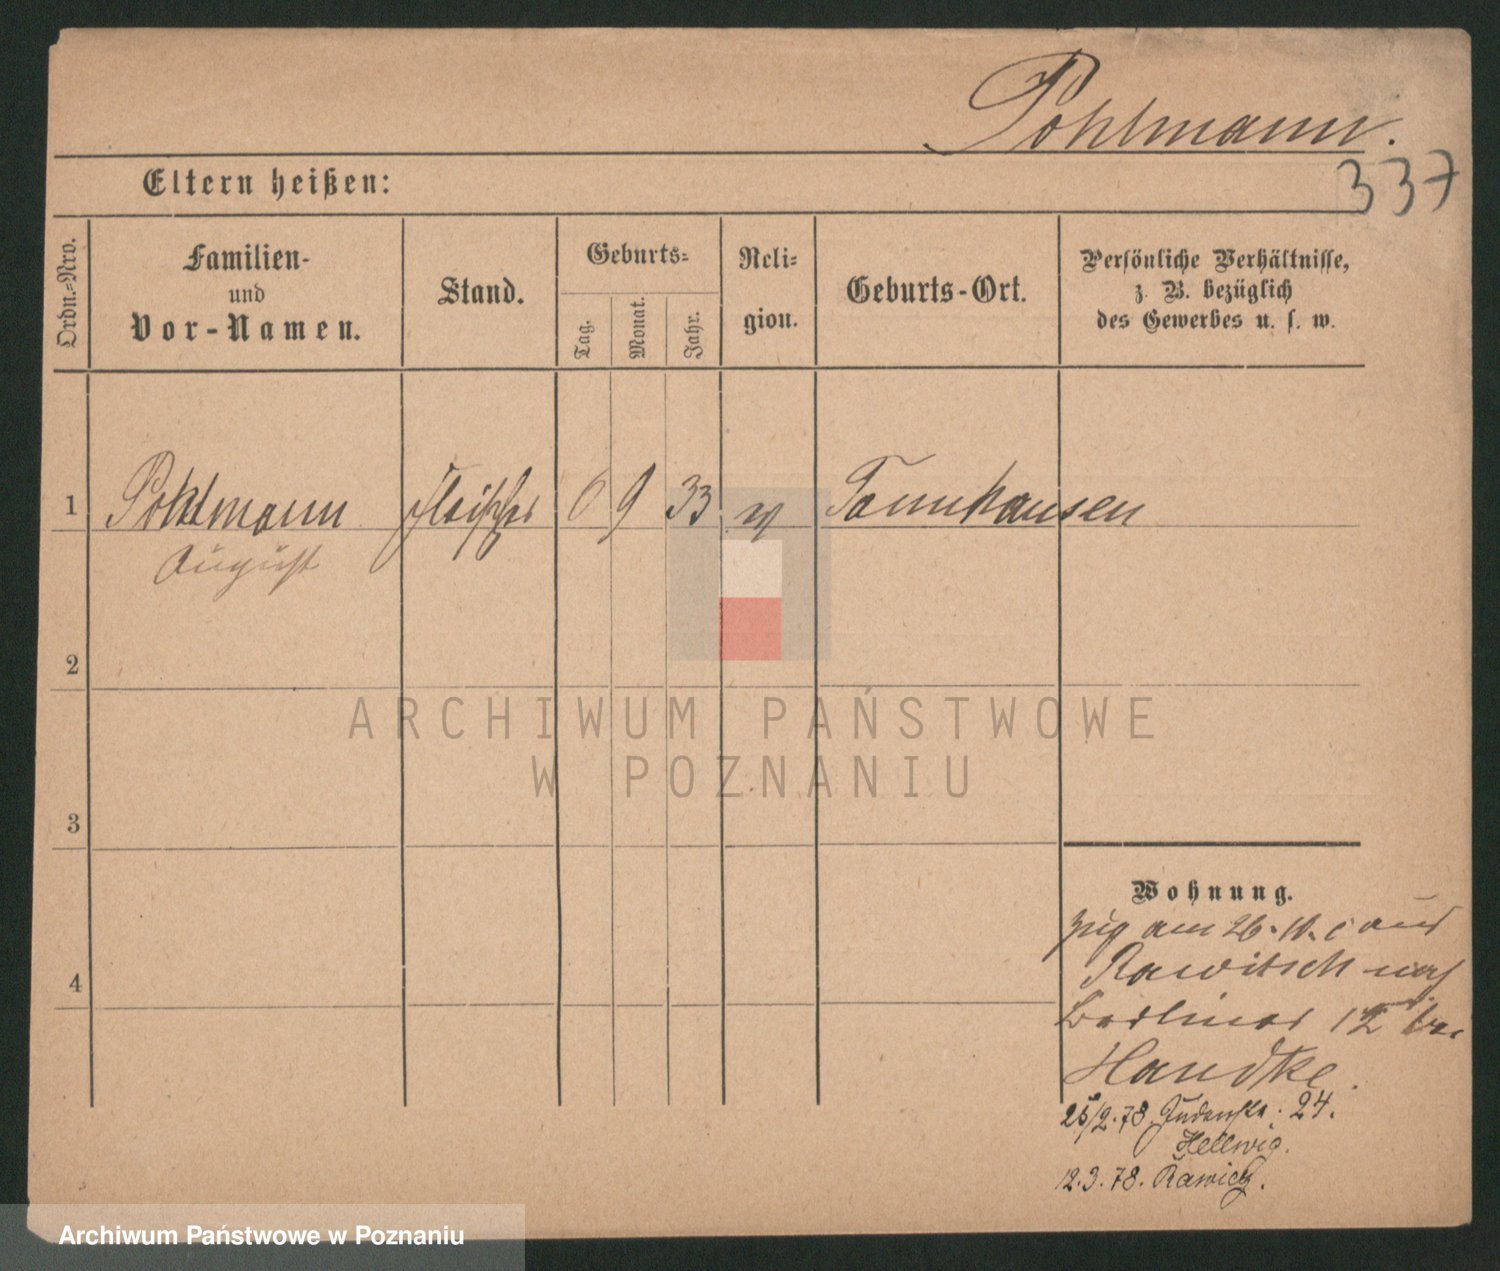 Pohlmann.
337
Eltern heißen:
Ordn.-Nro.
Familien-
und
Vor-Namen.
Stand.
Geburts-
Tag.
Monat.
Jahr.
Reli-
gion.
Geburts-Ort.
Persönliche Verhältnisse,
z. B. bezüglich
des Gewerbes u. s. w.
1 Pohlmann Fleischer 6 9 33 Tannhausen
August
2
3
4
Wohnung.
zug am 26. 10. c aus
Rawitsch nach
Berliner 12 bei
Handke.
25/2. 78. Judenstr. 24.
Hellwig.
12. 3. 78. Rawicz.
ARCHIWUM PAŃSTWOWE
W POZNANIU
Archiwum Państwowe w Poznaniu